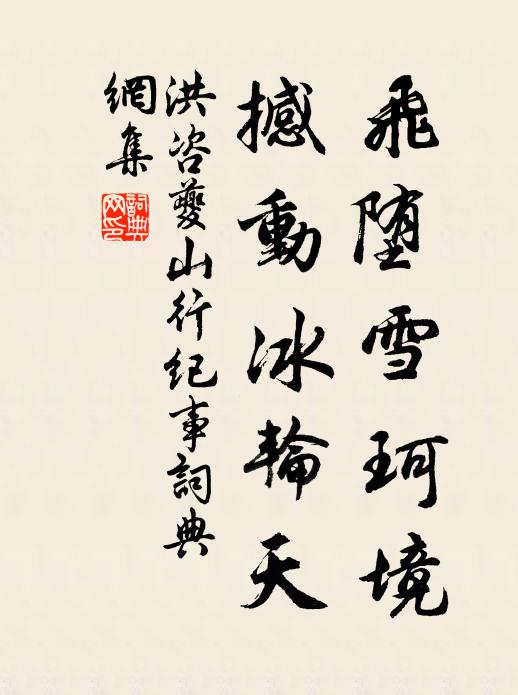 飛堕雪珂境
撼動冰輪天
洪咨夔山行紀事詞典
網集
詞典
网印